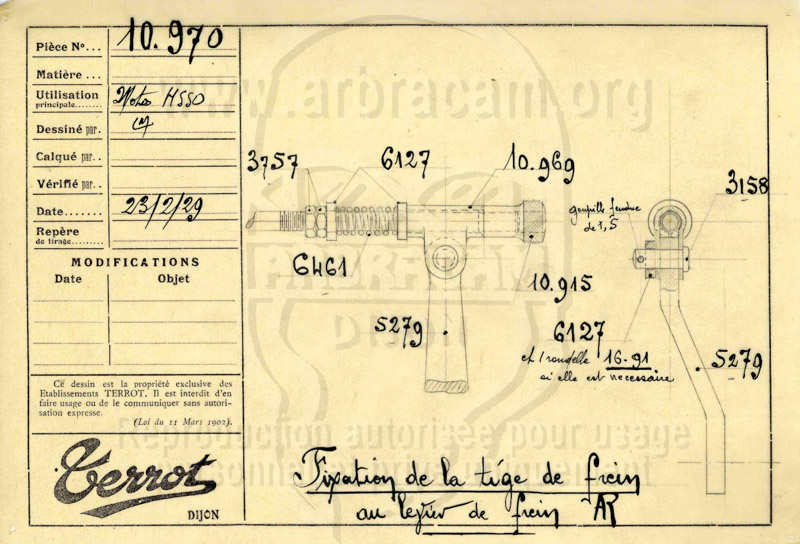 Pièce N°... 10.970
Matière ...
Utilisation
principale........ Motos HSSO
Dessiné par.
Calqué par..
Vérifié par..
Date....... 23/2/29
Repère
de tirage..........
MODIFICATIONS
Date Objet
Ce dessin est la propriété exclusive des
Etablissements TERROT. Il est interdit d'en
faire usage ou de le communiquer sans autori-
sation expresse.
(Loi du 11 Mars 1902).
Terrot
DIJON
www.arbracam.org
3757 6127 10.969
3158
goupille fendue
de 1,5
6461
10.915
5279
6127
et 1 rondelle 16.91
si elle est necessaire
5279
DIJON
Reproduction autorisée pour usage
personnel et privé uniquement
Fixation de la tige de frein
au levier de frein AR